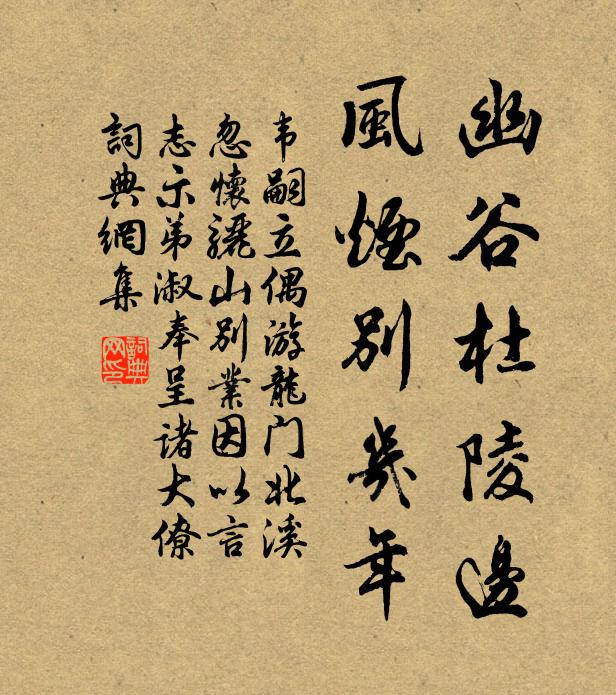 幽谷杜陵邊
風煙別幾年
韦嗣立偶游龍门北溪
忽懷驪山别業因以言
志示弟淑奉呈諸大僚
詞典網集
詞典
网印